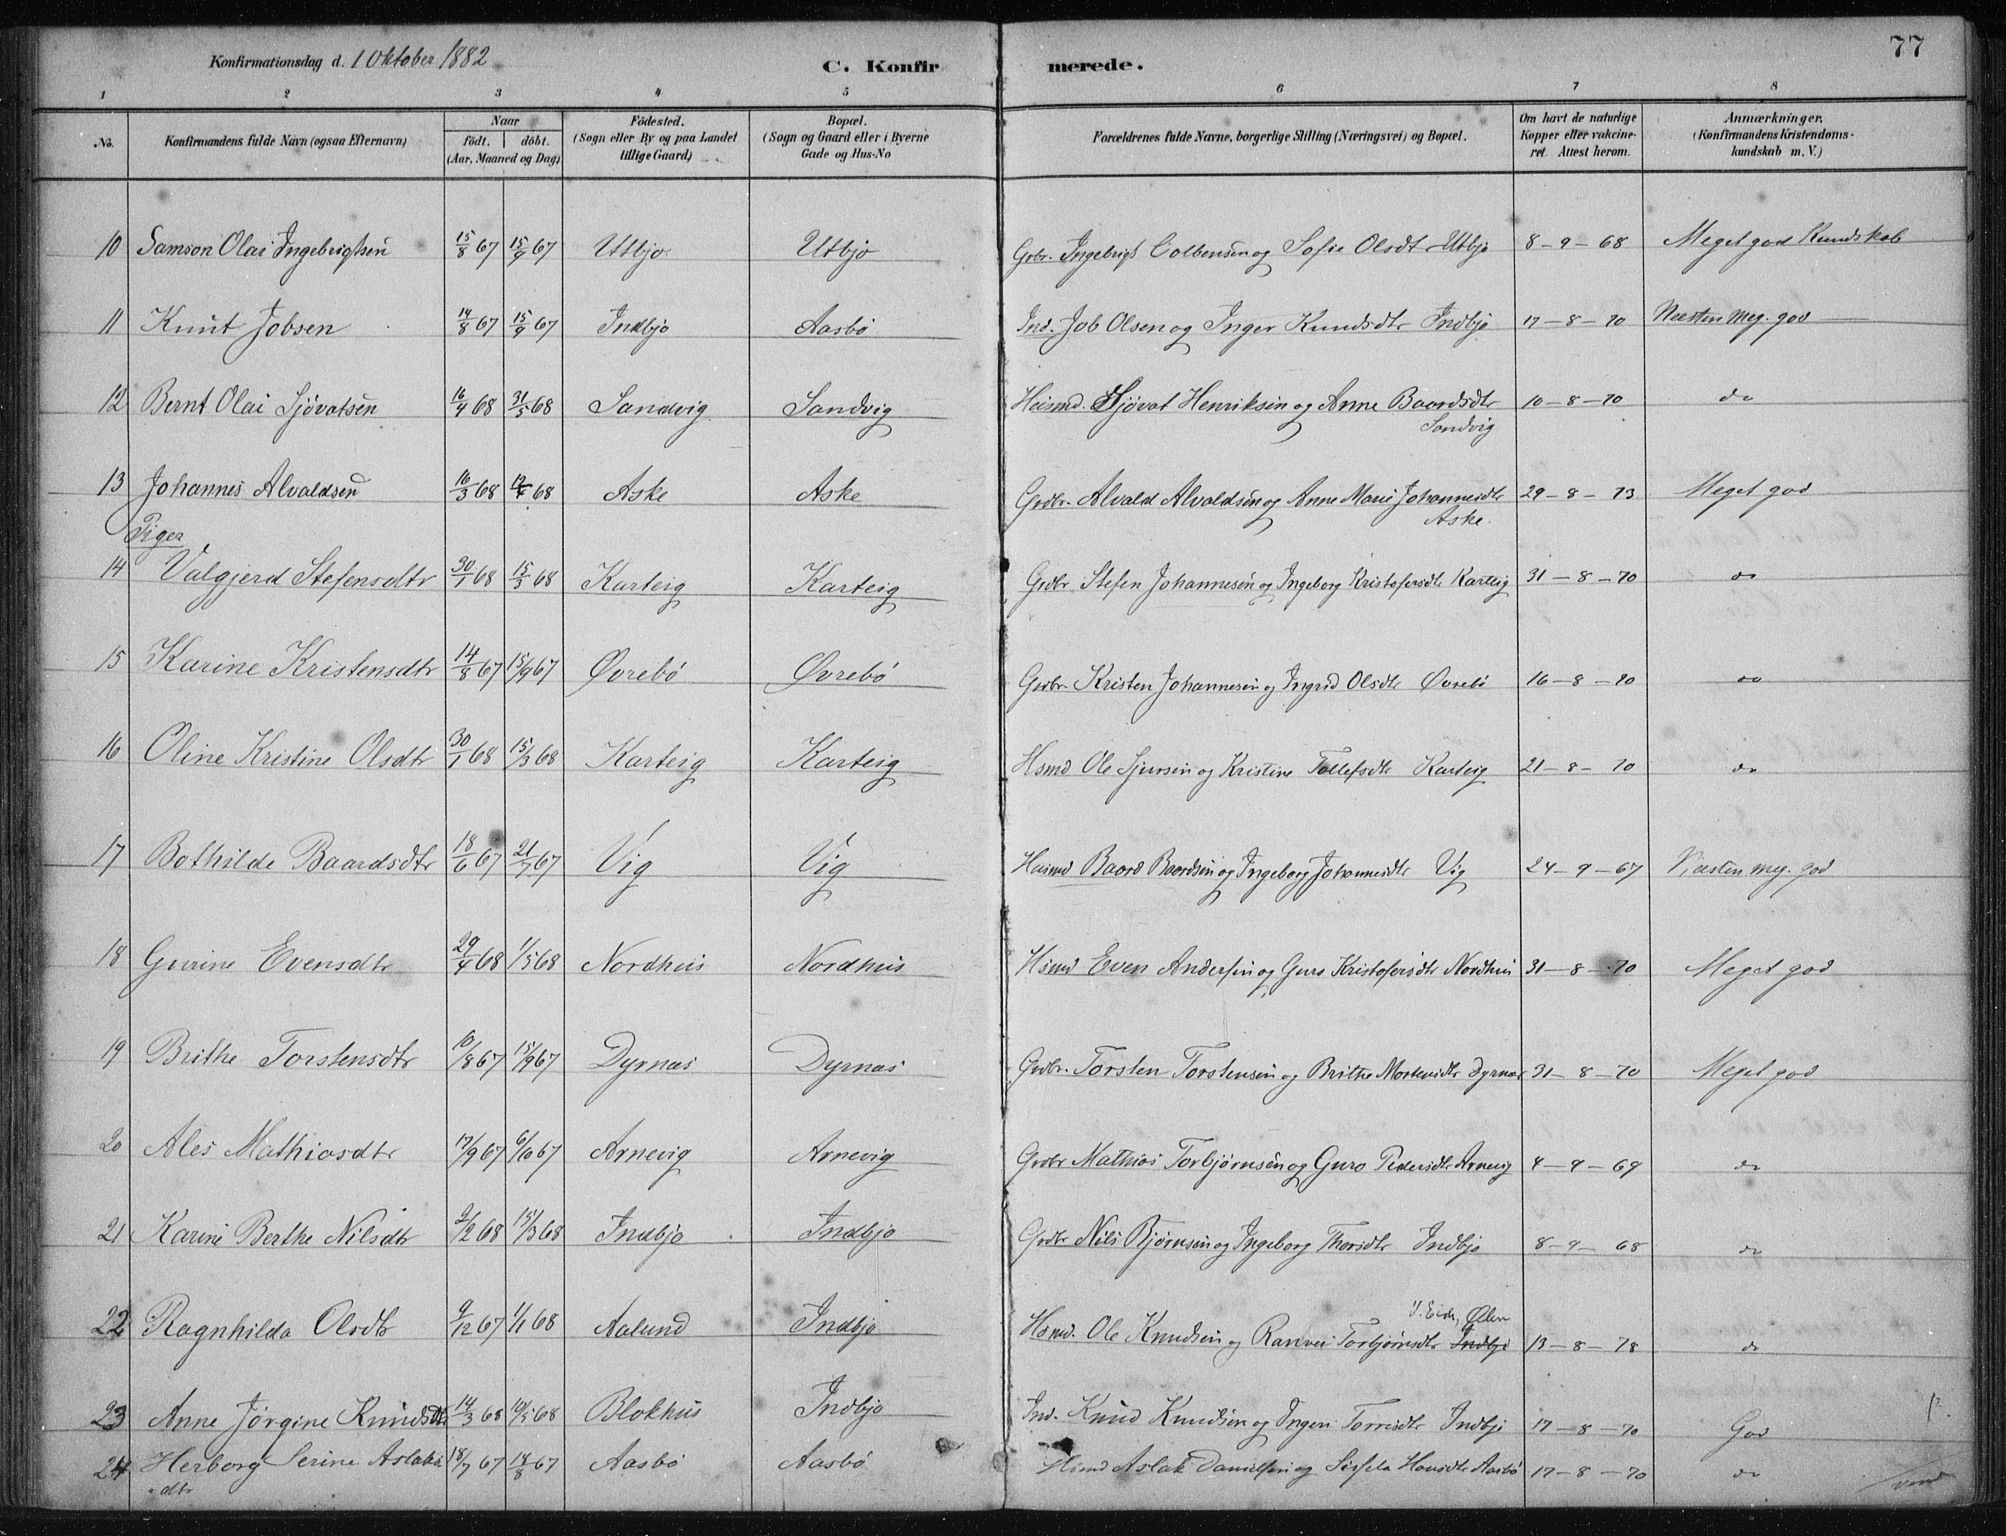 Konfirmationsdag d. 1 Oktober 1882
C. Konfirmerede.
77
1 2 3 4 5 6 7 8
No. Konfirmandens fulde Navn (ogsaa Efternavn) Naar født. døbt. (Aar, Maaned og Dag) Fødested. (Sogn eller By og paa Landet tillige Gaard) Bopæl. (Sogn og Gaard eller i Byerne Gade og Hus-No Forældrenes fulde Navne, borgerlige Stilling (Næringsvei) og Bopæl. Om havt de naturlige Kopper eller vakcineret. Attest herom. Anmærkninger. (Konfirmandens Kristendomskundskab m. V.)
10 Samson Olai Ingebrigtsen 15/8 67 15/9 67 Utbjo Utbjo Grbr. Ingebrigt Colbensen og Sofie Olsdt Utbjo 8-9-68 Meget god Kundskab
11 Knut Jobsen 14/8 67 15/9 67 Indbjo Aasbö Ind. Job Olsen og Inger Knudsdtr Indbjo 17-8-70 Næsten meg. god
12 Bernt Olai Sjövatsen 16/4 68 31/5 68 Sandvig Sandvig Husmd. Sjövat Henriksen og Anne Baardsdtr 10-8-70 do
Sandvig
13 Johannes Alvaldsen 16/3 68 68 Aske Aske Grdbr. Alvald Alvaldsen og Anne Marie Johannesdtr 29-8-73 Meget god
Aske.
Piger
14 Valgjerd Stefensdtr 30/1 68 15/3 68 Karteig Karteig Grdbr Stefen Johannesen og Ingeborg Kristofersdtr Karteig 31-8-70 do
15 Karine Kristensdtr 14/8 67 15/9 67 Øvrebö Øvrebö Grdbr. Kristen Johannesen og Ingrid Olsdtr Øvrebö 16-8-70 do
16 Oline Kristine Olsdtr 30/1 68 15/3 68 Karteig Karteig Hsmd Ole Sjursen og Kristine Tollefsdtr Karteig 21-8-70 do
17 Bothilde Baardsdtr 18/6 67 21/7 67 Vig Vig Husmd Baard Baardsen og Ingeborg Johannesdtr Vig 24-9-67 Næsten meg. god
18 Gurine Evensdtr 29/4 68 1/5 68 Nordhus Nordhus Hsmd Even Andersen og Guro Kristofersdtr Nordhus 31-8-70 Meget god
19 Brithe Torstensdtr 10/8 67 15/9 67 Dyrnæs Dyrnæs Grdbr. Torsten Torstensen og Brithe Mortensdtr Dyrnæs 31-8-70 Meget god
20 Ales Mathiasdtr 17/9 67 6/10 67 Arnevig Arnevig Grdbr Mathias Torbjørnsen og Guro Pedersdtr Arnevig 4-9-69 do
21 Karine Berthe Nilsdtr 2/2 68 15/3 68 Indbjo Indbjo Grdbr Nils Bjørnsen og Ingeborg Thorsdtr Indbjo 8-9-68 do
Ølen
22 Ragnhilda Olsdtr 9/12 67 1/1 68 Aalund Indbjo Hsmd. Ole Knudsen og Ranvei Torbjørnsdtr Indbjo 13-8-78 do
23 Anne Jørgine Knudsdtr 14/3 68 10/5 68 Blokhus Indbjo Ind. Knud Knudsen og Ingeri Torrisdtr Indbjo 17-8-70 God
24 Herborg Serine Aslaks 18/7 67 18/8 67 Aasbö Aasbö Hsmd Aslak Danielsen og Sissela Hansdtr Aasbö 17-8-70 do
dtr
vend